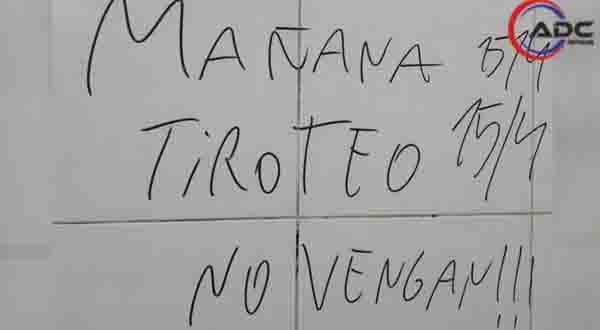 MAÑANA
TIROTEO 15/4
NO VENGAN!!!
ADC